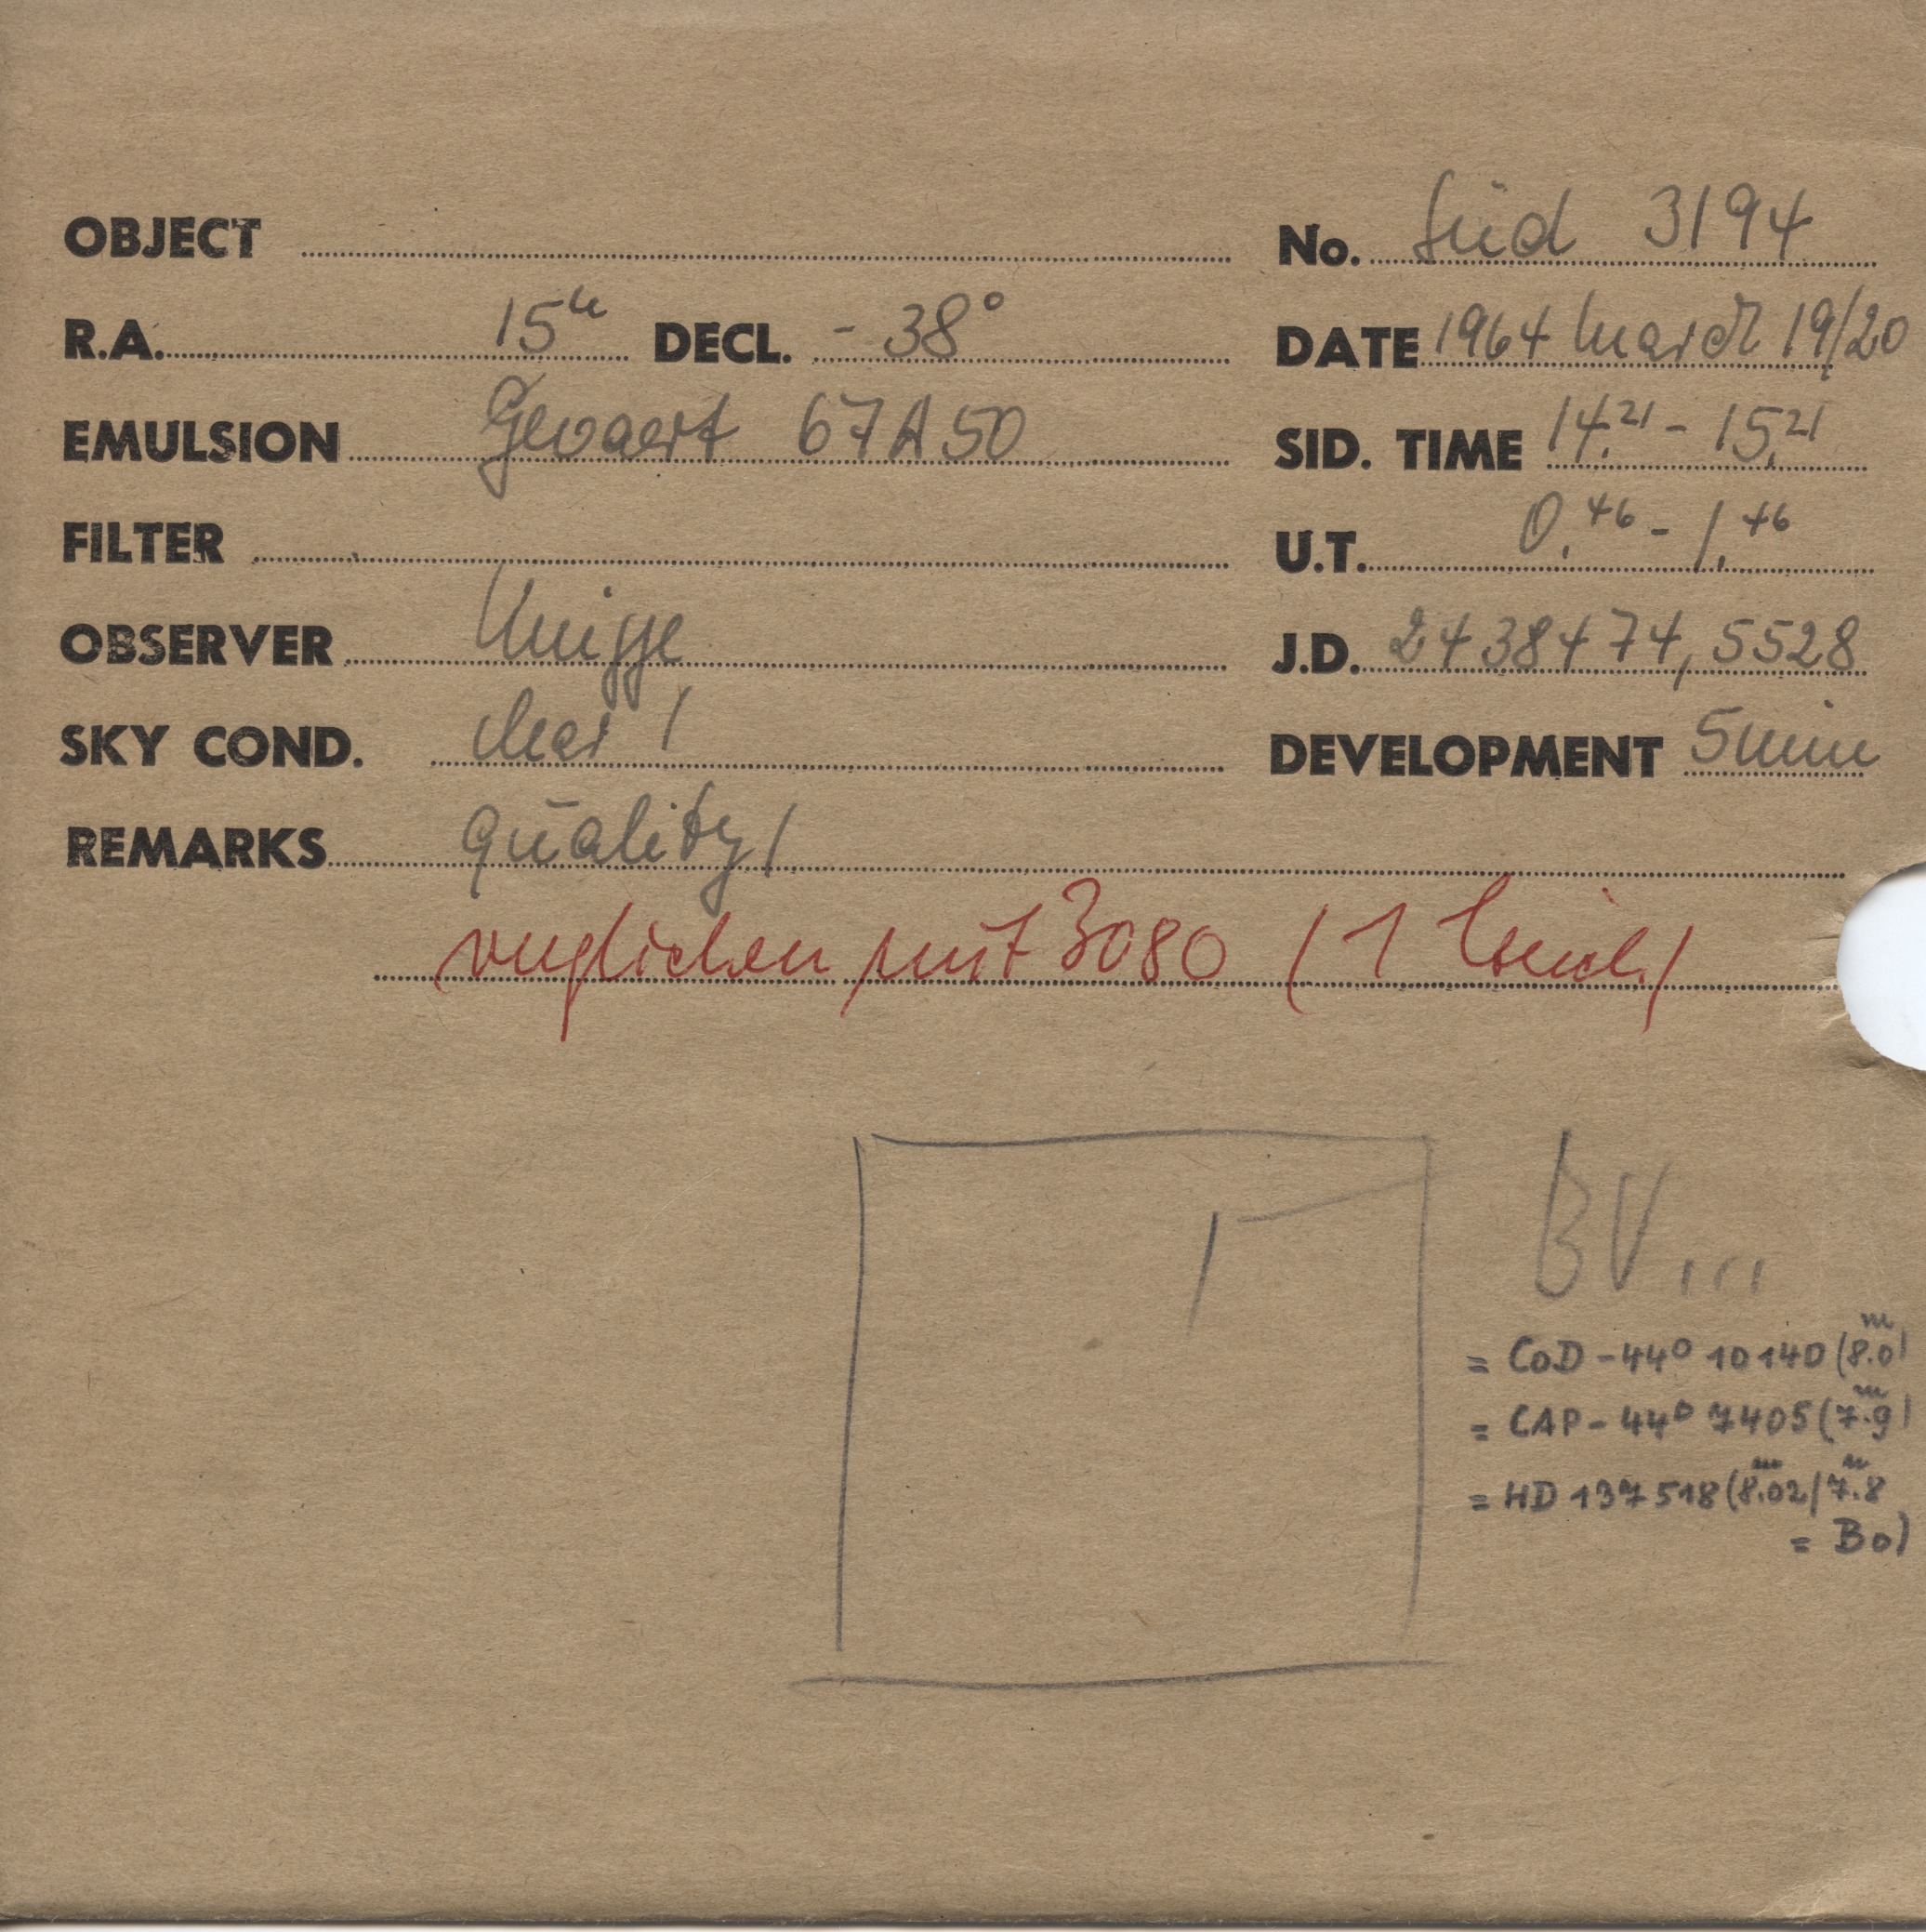 OBJECT No. Süd 3194
R.A. 15h DECL. - 38° DATE 1964 March 19/20
EMULSION Gevaert 67A50 SID. TIME 14.21 - 15.21
FILTER U.T. 0.46 - 1.46
OBSERVER Knigge J.D. 2438474,5528
SKY COND. clear 1 DEVELOPMENT 5 min
REMARKS quality 1
verglichen mit 3080 (1
BV...
= CoD -44° 10140 (8.0m)
= CAP -44° 7405 (7.9m)
= HD 137518 (8.02m/7.8m
= B0)